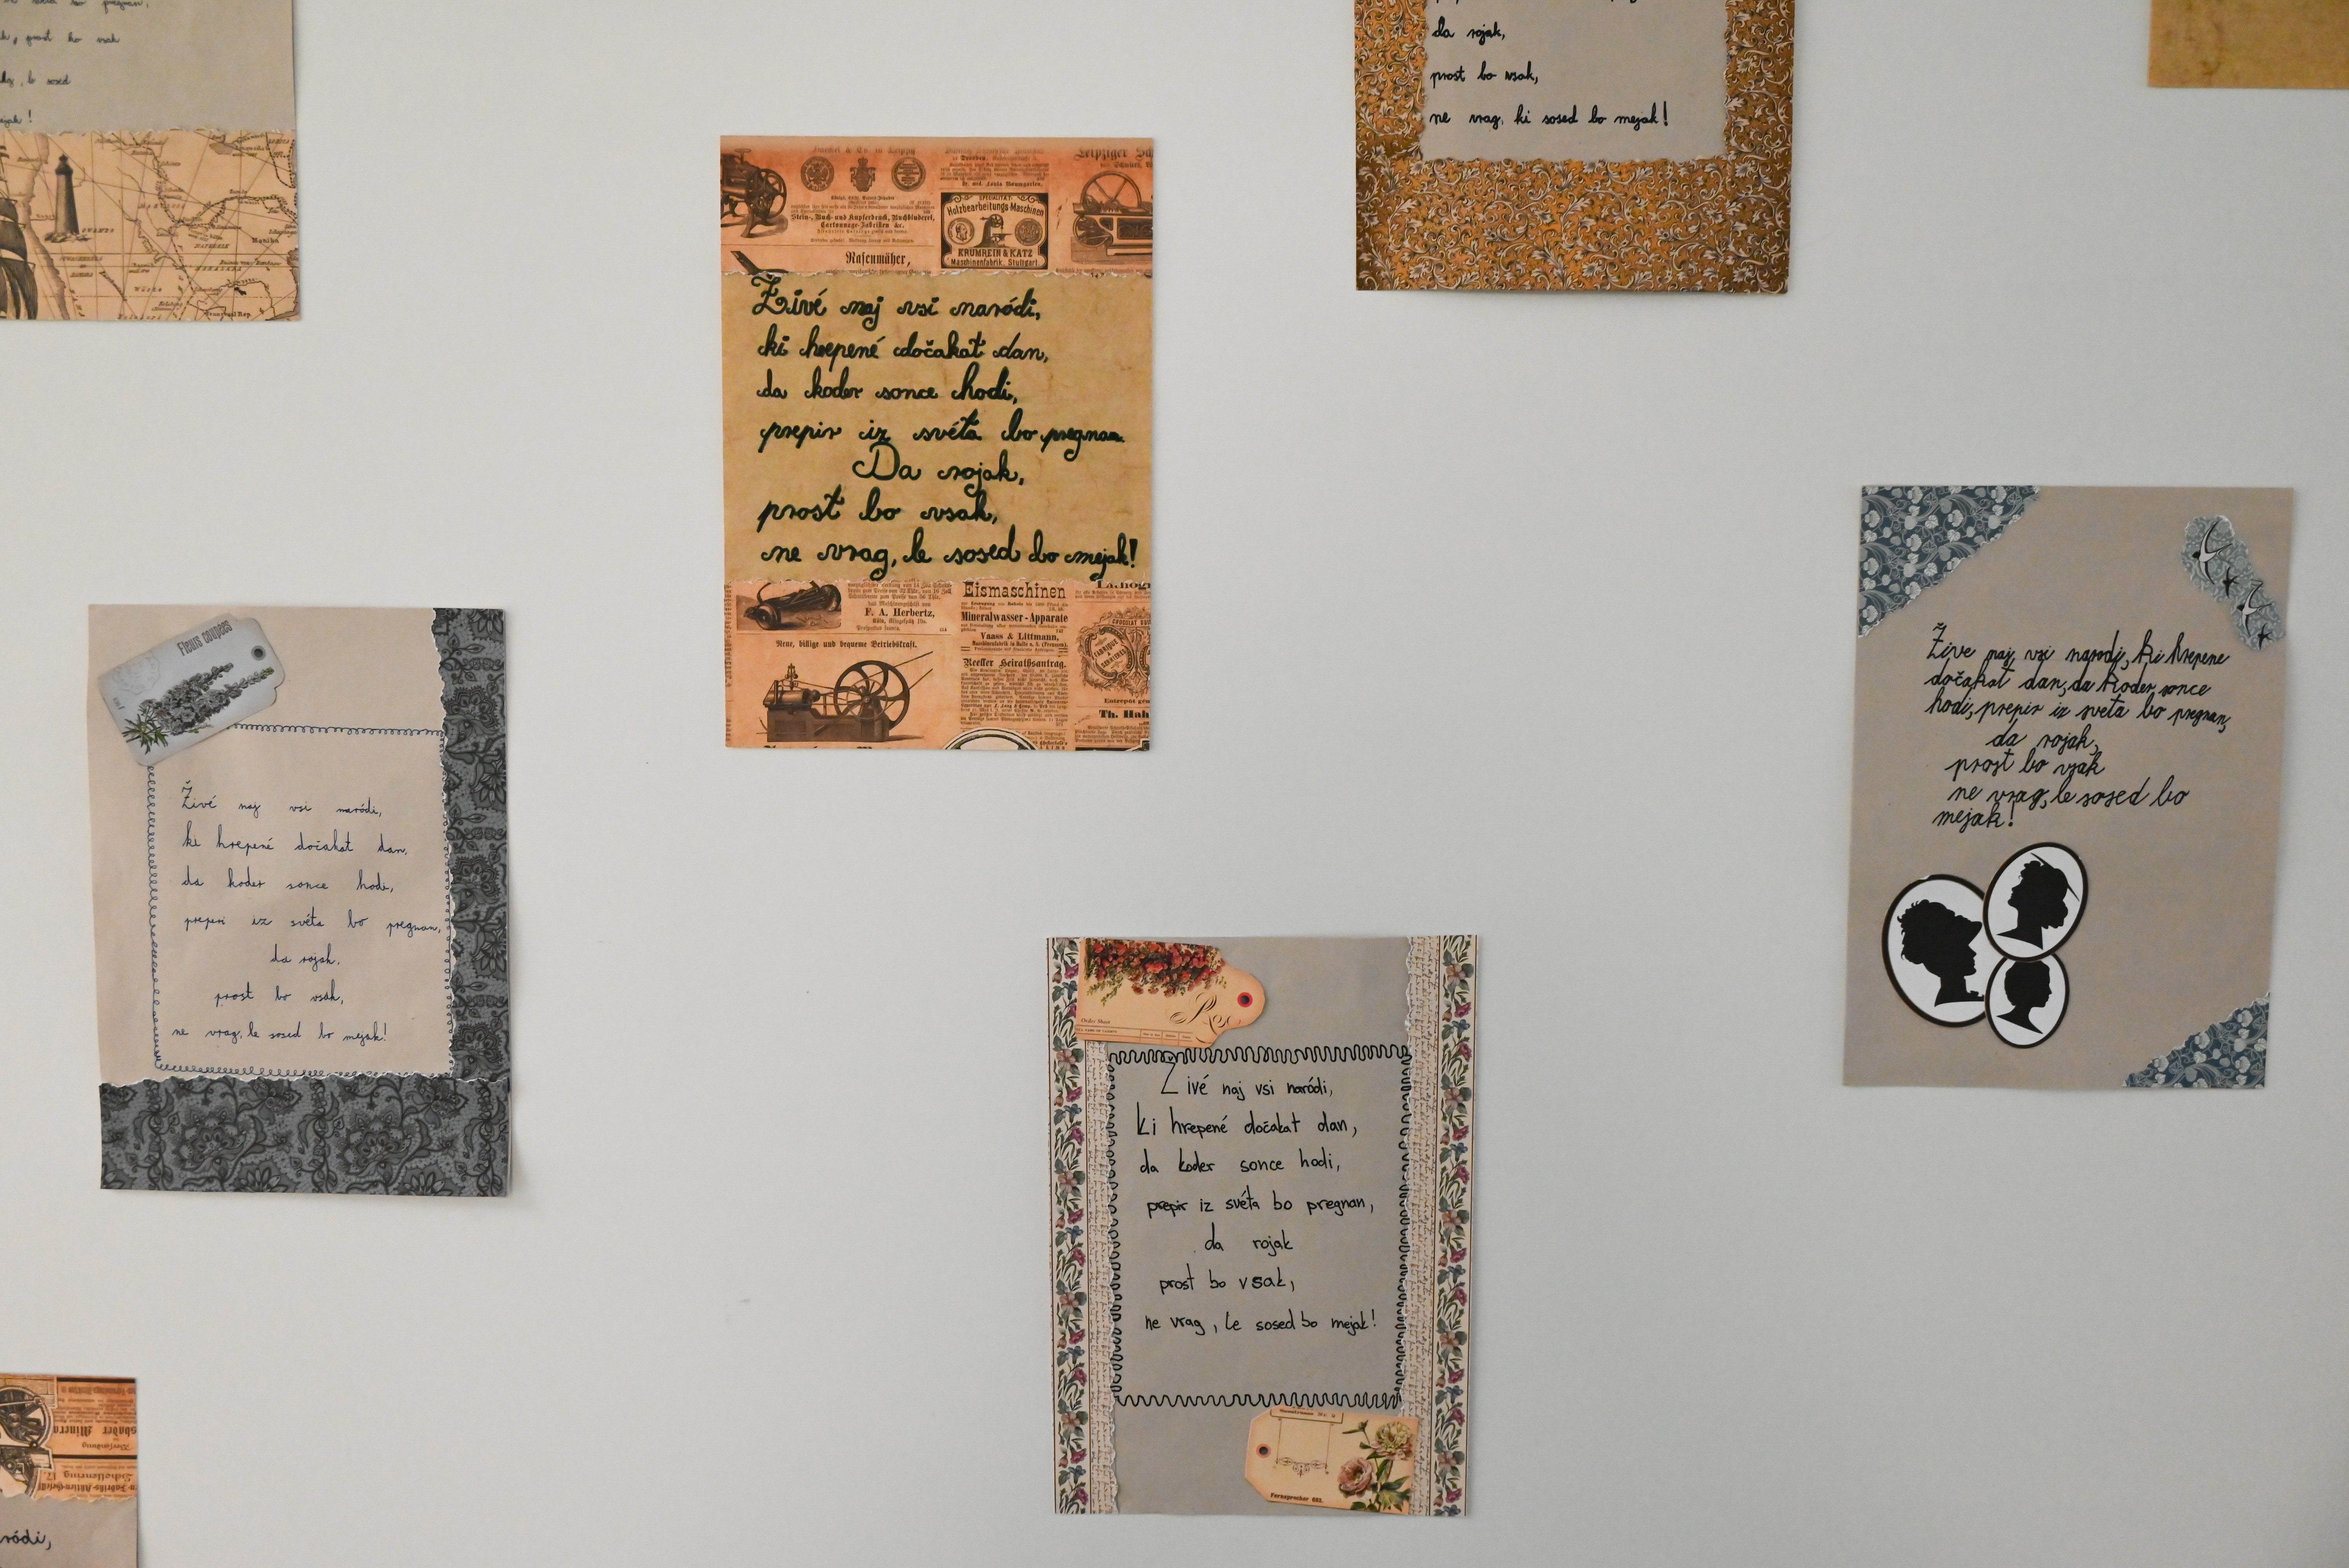 bo pregnan,
prost bo vsak
le sosed
mejak!
da rojak,
prost bo vsak,
ne vrag, ki sosed bo mejak!
Leipziger
Dr. med. Louis Baumgarten,
SPECIALITÄT:
Holzbearbeitungs-Maschinen
KRUMREIN & KATZ
Maschinenfabrik, Stuttgart.
Stein-, Buch- und Kupferdruck, Buchbinderei,
Cartonnage-Fabriken &c.
Rasenmäher,
Živé naj vsi naródi,
ki hrepené dočakat dan,
da koder sonce hodi,
prepir iz svéta bo pregnan.
Da rojak,
prost bo vsak,
ne vrag, le sosed bo mejak!
F. A. Herbertz,
Neue, billige und bequeme Betriebskraft.
Eismaschinen
Mineralwasser-Apparate
Vaass & Littmann,
Reeller Heirathsantrag.
CHOCOLAT
FABRIQUE
Th. Hah
Fleurs coupées
Živé naj vsi naródi,
ki hrepené dočakat dan,
da koder sonce hodi,
prepir iz svéta bo pregnan,
da rojak,
prost bo vsak,
ne vrag, le sosed bo mejak!
Žive naj vsi narodi, ki hrepene
dočakat dan, da koder sonce
hodi, prepir iz sveta bo pregnan,
da rojak,
prost bo vsak
ne vrag, le sosed bo
mejak!
Order Sheet
Živé naj vsi naródi,
ki hrepené dočakat dan,
da koder sonce hodi,
prepir iz svéta bo pregnan,
da rojak
prost bo vsak,
ne vrag, le sosed bo mejak!
Fernsprecher 693.
ródi,